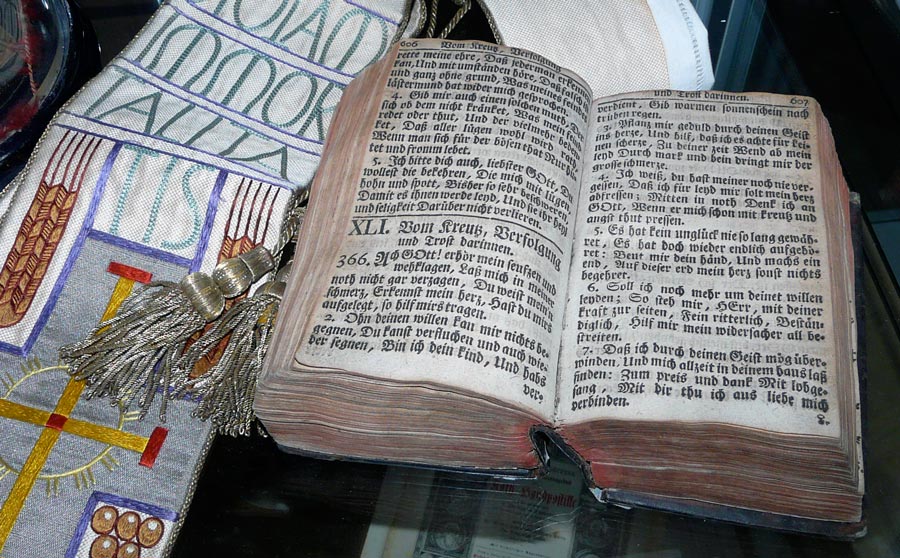 606 Vom Kreutz, Verfolgung
rette meine ehre, Daß jederman erkennen
kan, Und mit umständen höre, Daß
und ganz ohne grund, Was meines feindes
lästermund hat wider mich gesprochen.
4. Gib mir auch einen solchen muth, Der
sich ob dem nicht kränket, Was mein feind
redet oder thut, Und der vielmehr bedencket,
Daß aller lügen wohl wird rath,
Wenn man sich für der bösen that
ret und fromm lebet.
5. Ich bitte dich auch, liebster GOtt, Du
wollest die bekehren, Die mich mit lügen,
hohn und spott, Bisher so sehr beschweren,
Damit es ihnen werde leyd, Und sie ihr heyl
und seligkeit Darüber nicht verlieren.
XLI. Vom Kreutz, Verfolgung
und Trost darinnen.
366. Ach GOtt! erhör mein seufzen und
wehklagen, Laß mich in meiner
noth nicht gar verzagen, Du weist mein
schmerz, Erkennst mein herz, Hast du mirs
aufgelegt, so hilf mirs tragen.
2. Ohn deinen willen kan mir nichts be-
gegnen, Du kanst verfluchen und auch wie-
der segnen, Bin ich dein kind, Und habs
ver-
und Trost darinnen. 607
verdient, Gib warmen sonnenschein nach
trüben regen.
3. Pflanz mir gedult durch deinen Geist
ins herze, Und hilf, daß ich es achte für kei-
nen scherze, Zu deiner zeit Wend ab mein
leyd Durch marck und bein dringt mir der
grosse schmerze.
4. Ich weiß, du hast meiner noch nie ver-
gessen, Daß ich für leyd mir solt mein herz
abfressen; Mitten in noth Denk ich an
GOtt, Wenn er mich schon mit kreutz und
angst thut pressen.
5. Es hat kein unglück nie so lang gewäh-
ret, Es hat doch wieder endlich aufgehö-
ret: Beut mir dein händ, Und machs ein
end, Auf dieser erd mein herz sonst nichts
begehret.
6. Soll ich noch mehr um deinet willen
leyden; So steh mir, HErr, mit deiner
kraft zur seiten, Fein ritterlich, Bestän-
diglich, Hilf mir mein widersacher all be-
streiten.
7. Daß ich durch deinen Geist mög über-
winden, Und mich allzeit in deinem haus laß
finden: Zum preis und dank Mit lobge-
sang, Mit dir thu ich aus liebe mich
verbinden.